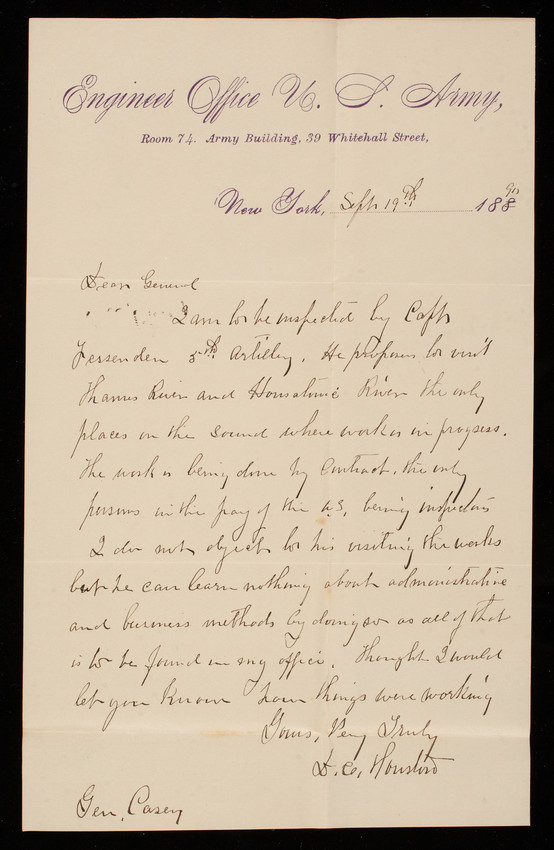 Engineer Office U. S. Army,
Room 74. Army Building, 39 Whitehall Street,
New York, Sept 19th 1890
Dear General
I am to be inspected by Capt
Fessenden 5th Artillery. He proposes to visit
Thames River and Housatonic River the only
places on the Sound where work is in progress.
The work is being done by Contract, the only
persons in the pay of the U.S. being inspectors
I do not object to his visiting the works
but he can learn nothing about administrative
and business methods by doing so as all of that
is to be found in my office. Thought I would
let you know how things were working
Yours, Very Truly
D. C. Houston
Gen. Casey